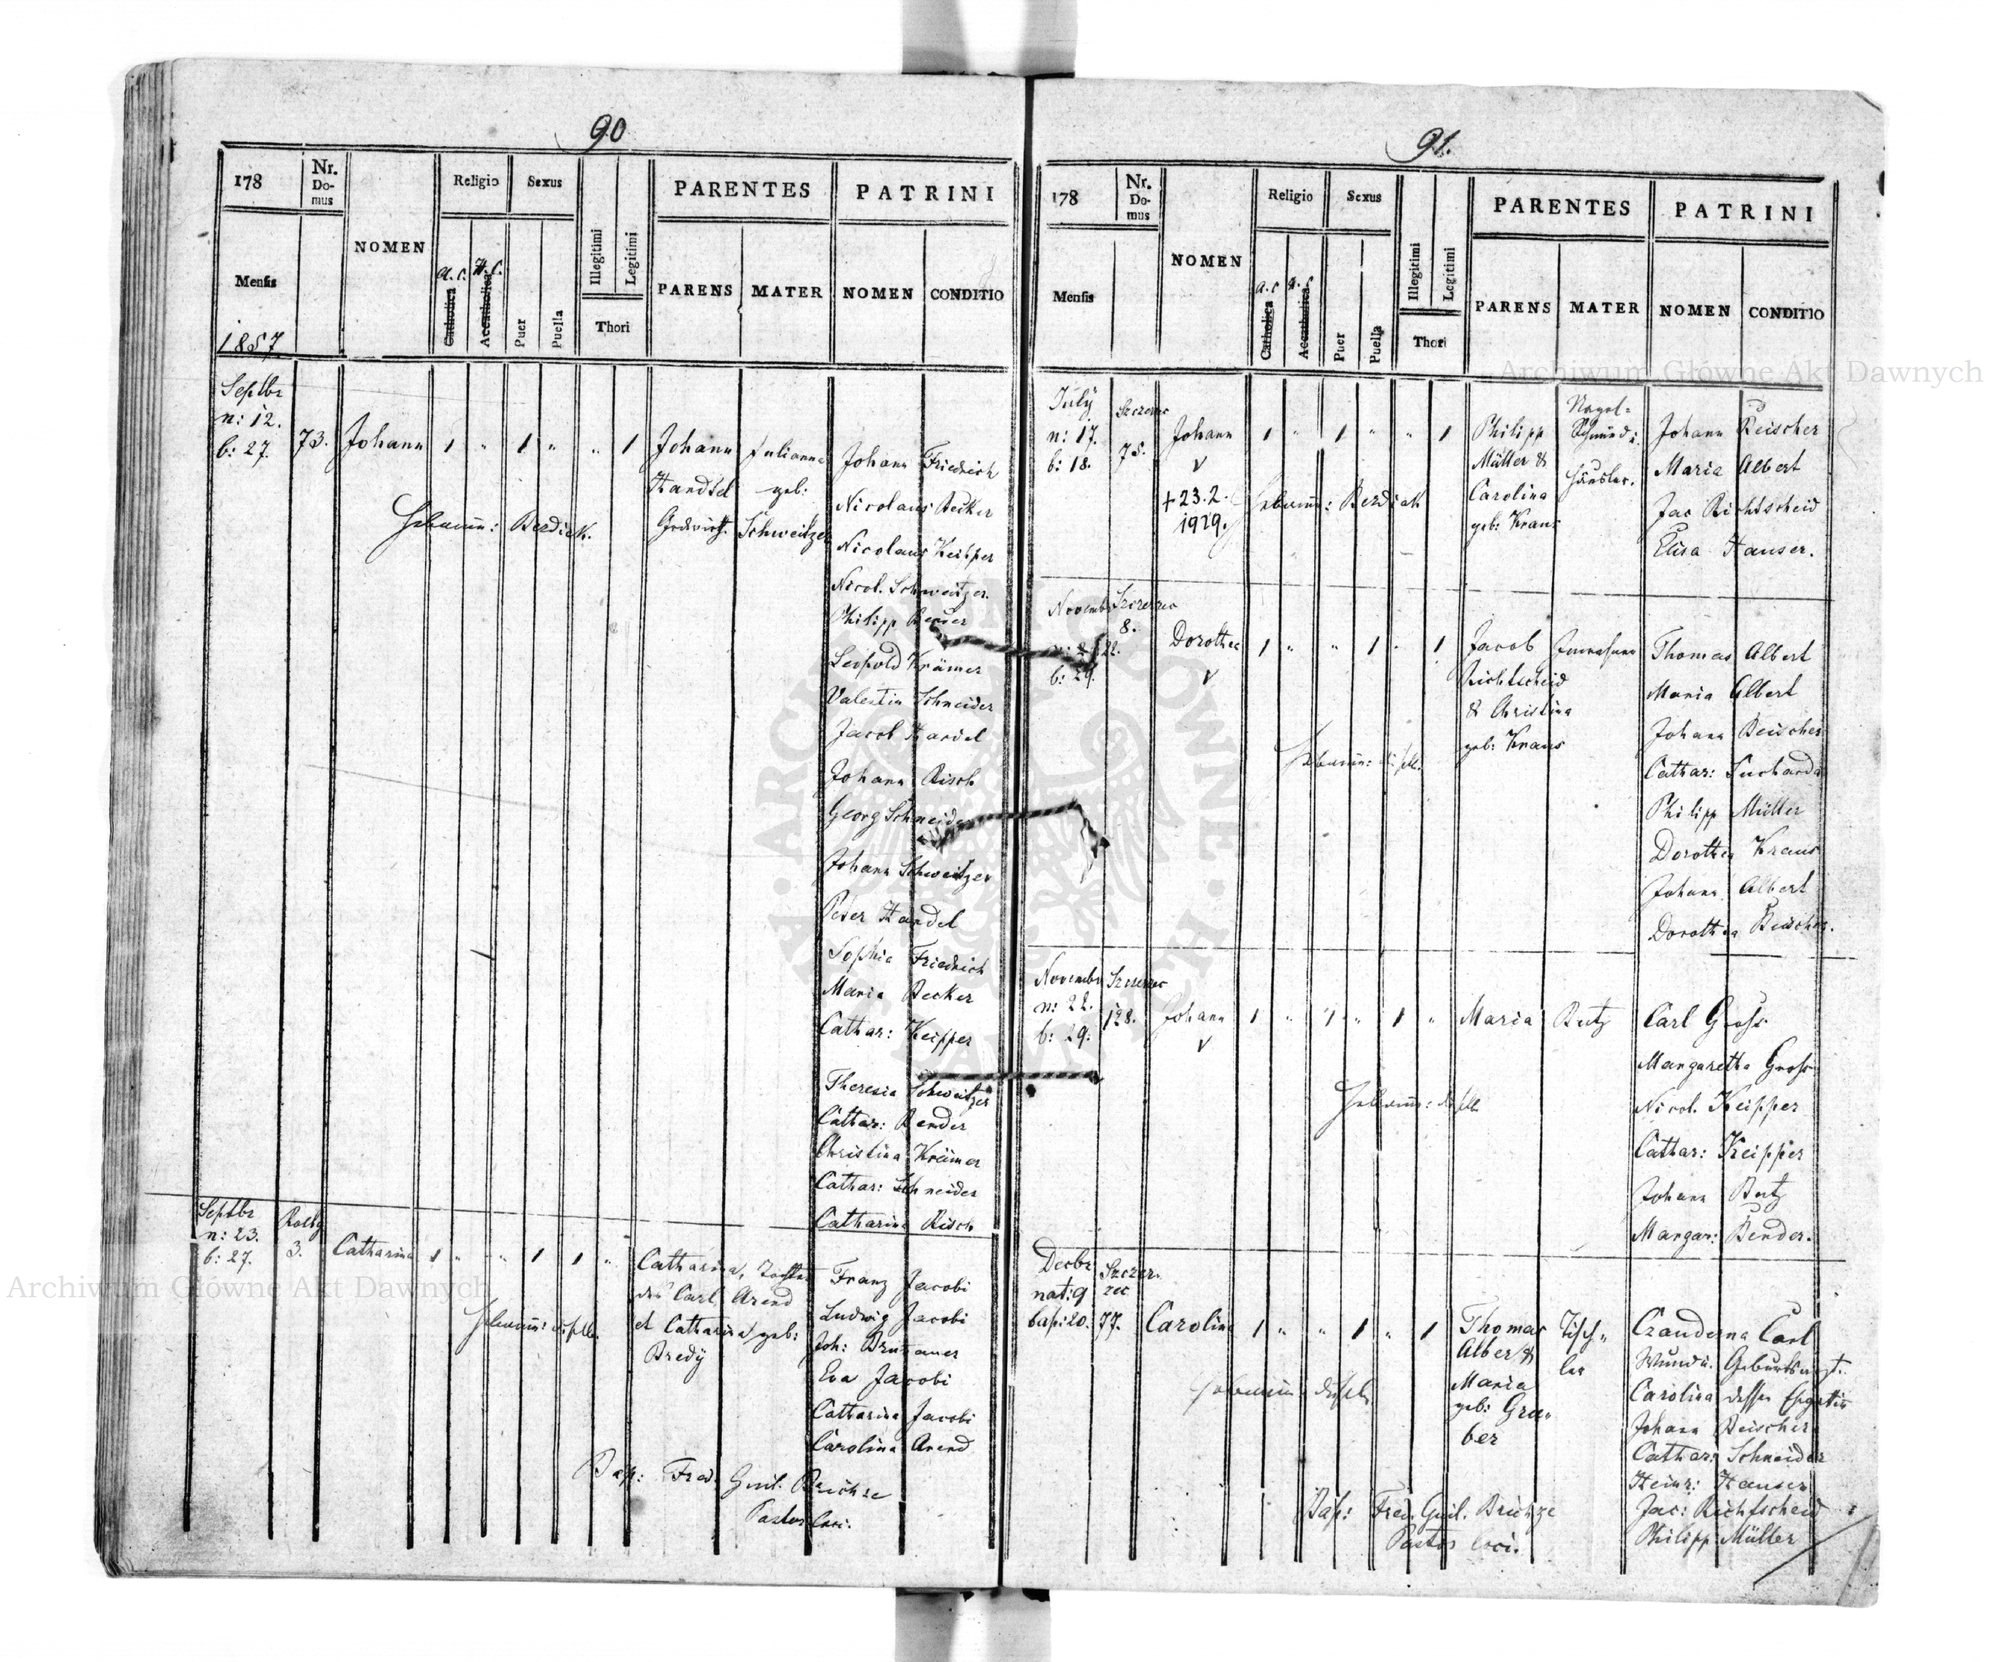 90
178
Nr.
Do-
mus
NOMEN
Religio
Sexus
Illegitimi
Legitimi
PARENTES
PATRINI
Mensis
A. C.
H. C.
Catholica
Accatholica
Puer
Puella
Thori
PARENS
MATER
NOMEN
CONDITIO
1857
Septbr
n: 12.
b: 27.
73.
Johann
1 " 1 " " 1
Johann
Handel
Julianna
geb:
Schweitzer
Hebamm: Berdick.
Johann Friedrich
Nicolaus Becker
Nicolaus Keipper
Nicol. Schweitzer.
Philipp Bender
Leopold Krämer
Valentin Schneider
Jacob Handel
Johann Risch
Georg Schneider
Johann Schweitzer
Peter Handel
Sophia Friedrich
Maria Becker
Cathar: Keipper
Theresia Schweitzer
Cathar: Bender
Christina Krämer
Cathar: Schneider
Catharina Risch
Septbr
n: 23.
b: 27.
3.
Catharina
1 " " 1 1 "
Catharina, Tochter
des Carl Arend
et Catharina geb:
Bredy
Hebamm: dieselbe.
Franz Jacobi
Ludwig Jacobi
Joh:
Eva Jacobi
Catharina Jacobi
Carolina Arend
Bap: Fred. Guil.
Pastor loci.
91.
178
Nr.
Do-
mus
NOMEN
Religio
Sexus
Illegitimi
Legitimi
PARENTES
PATRINI
Mensis
A. C
H. C
Catholica
Accatholica
Puer
Puella
Thori
PARENS
MATER
NOMEN
CONDITIO
July
n: 17.
b: 18.
Szczerzec
75.
Johann
+23.2.
1929.
1 " 1 " " 1
Philipp
Müller &
Carolina
geb: Kraus
Nagel=
Schmied u.
Häusler.
Hebamm: Berdick
Johann Beischer
Maria Albert
Jac Richtscheid
Elisa Hauser.
Novembr
b: 29.
Szczerzec
8.
Dorothea
1 " " 1 " 1
Jacob
Richtscheid
& Christina
geb: Kraus
Hebamm: dieselb.
Thomas Albert
Maria Albert
Johann Beischer
Cathar: Sucharda
Philipp Müller
Dorothea Kraus
Johann Albert
Dorothea Beischer.
Novembr
n: 22.
b: 29.
Szczerzec
128.
Johann
1 " 1 " 1 "
Maria Butz
Hebamm: dieselb.
Carl Gross
Margaretha Gross
Nicol. Keipper
Cathar: Keipper
Johann Butz
Margar: Bender.
Decbr
nat: 9
bap: 20.
Szczer-
zec
77.
Carolina
1 " " 1 " 1
Thomas
Alber &
Maria
geb: Gra-
ber
Tisch-
ler
Hebamm dieselb.
Czanderna Carl
Wund u. Geburtsarzt.
Carolina dessen Ehgattin
Johann Beischer
Cathar: Schneider
Heinr: Hauser
Jac: Richtscheid
Philipp Müller
Bap: Fred. Guil.
Pastor loci.
Archiwum Główne Akt Dawnych
Archiwum Główne Akt Dawnych
ARCHIWUM GŁÓWNE AKT DAWNYCH